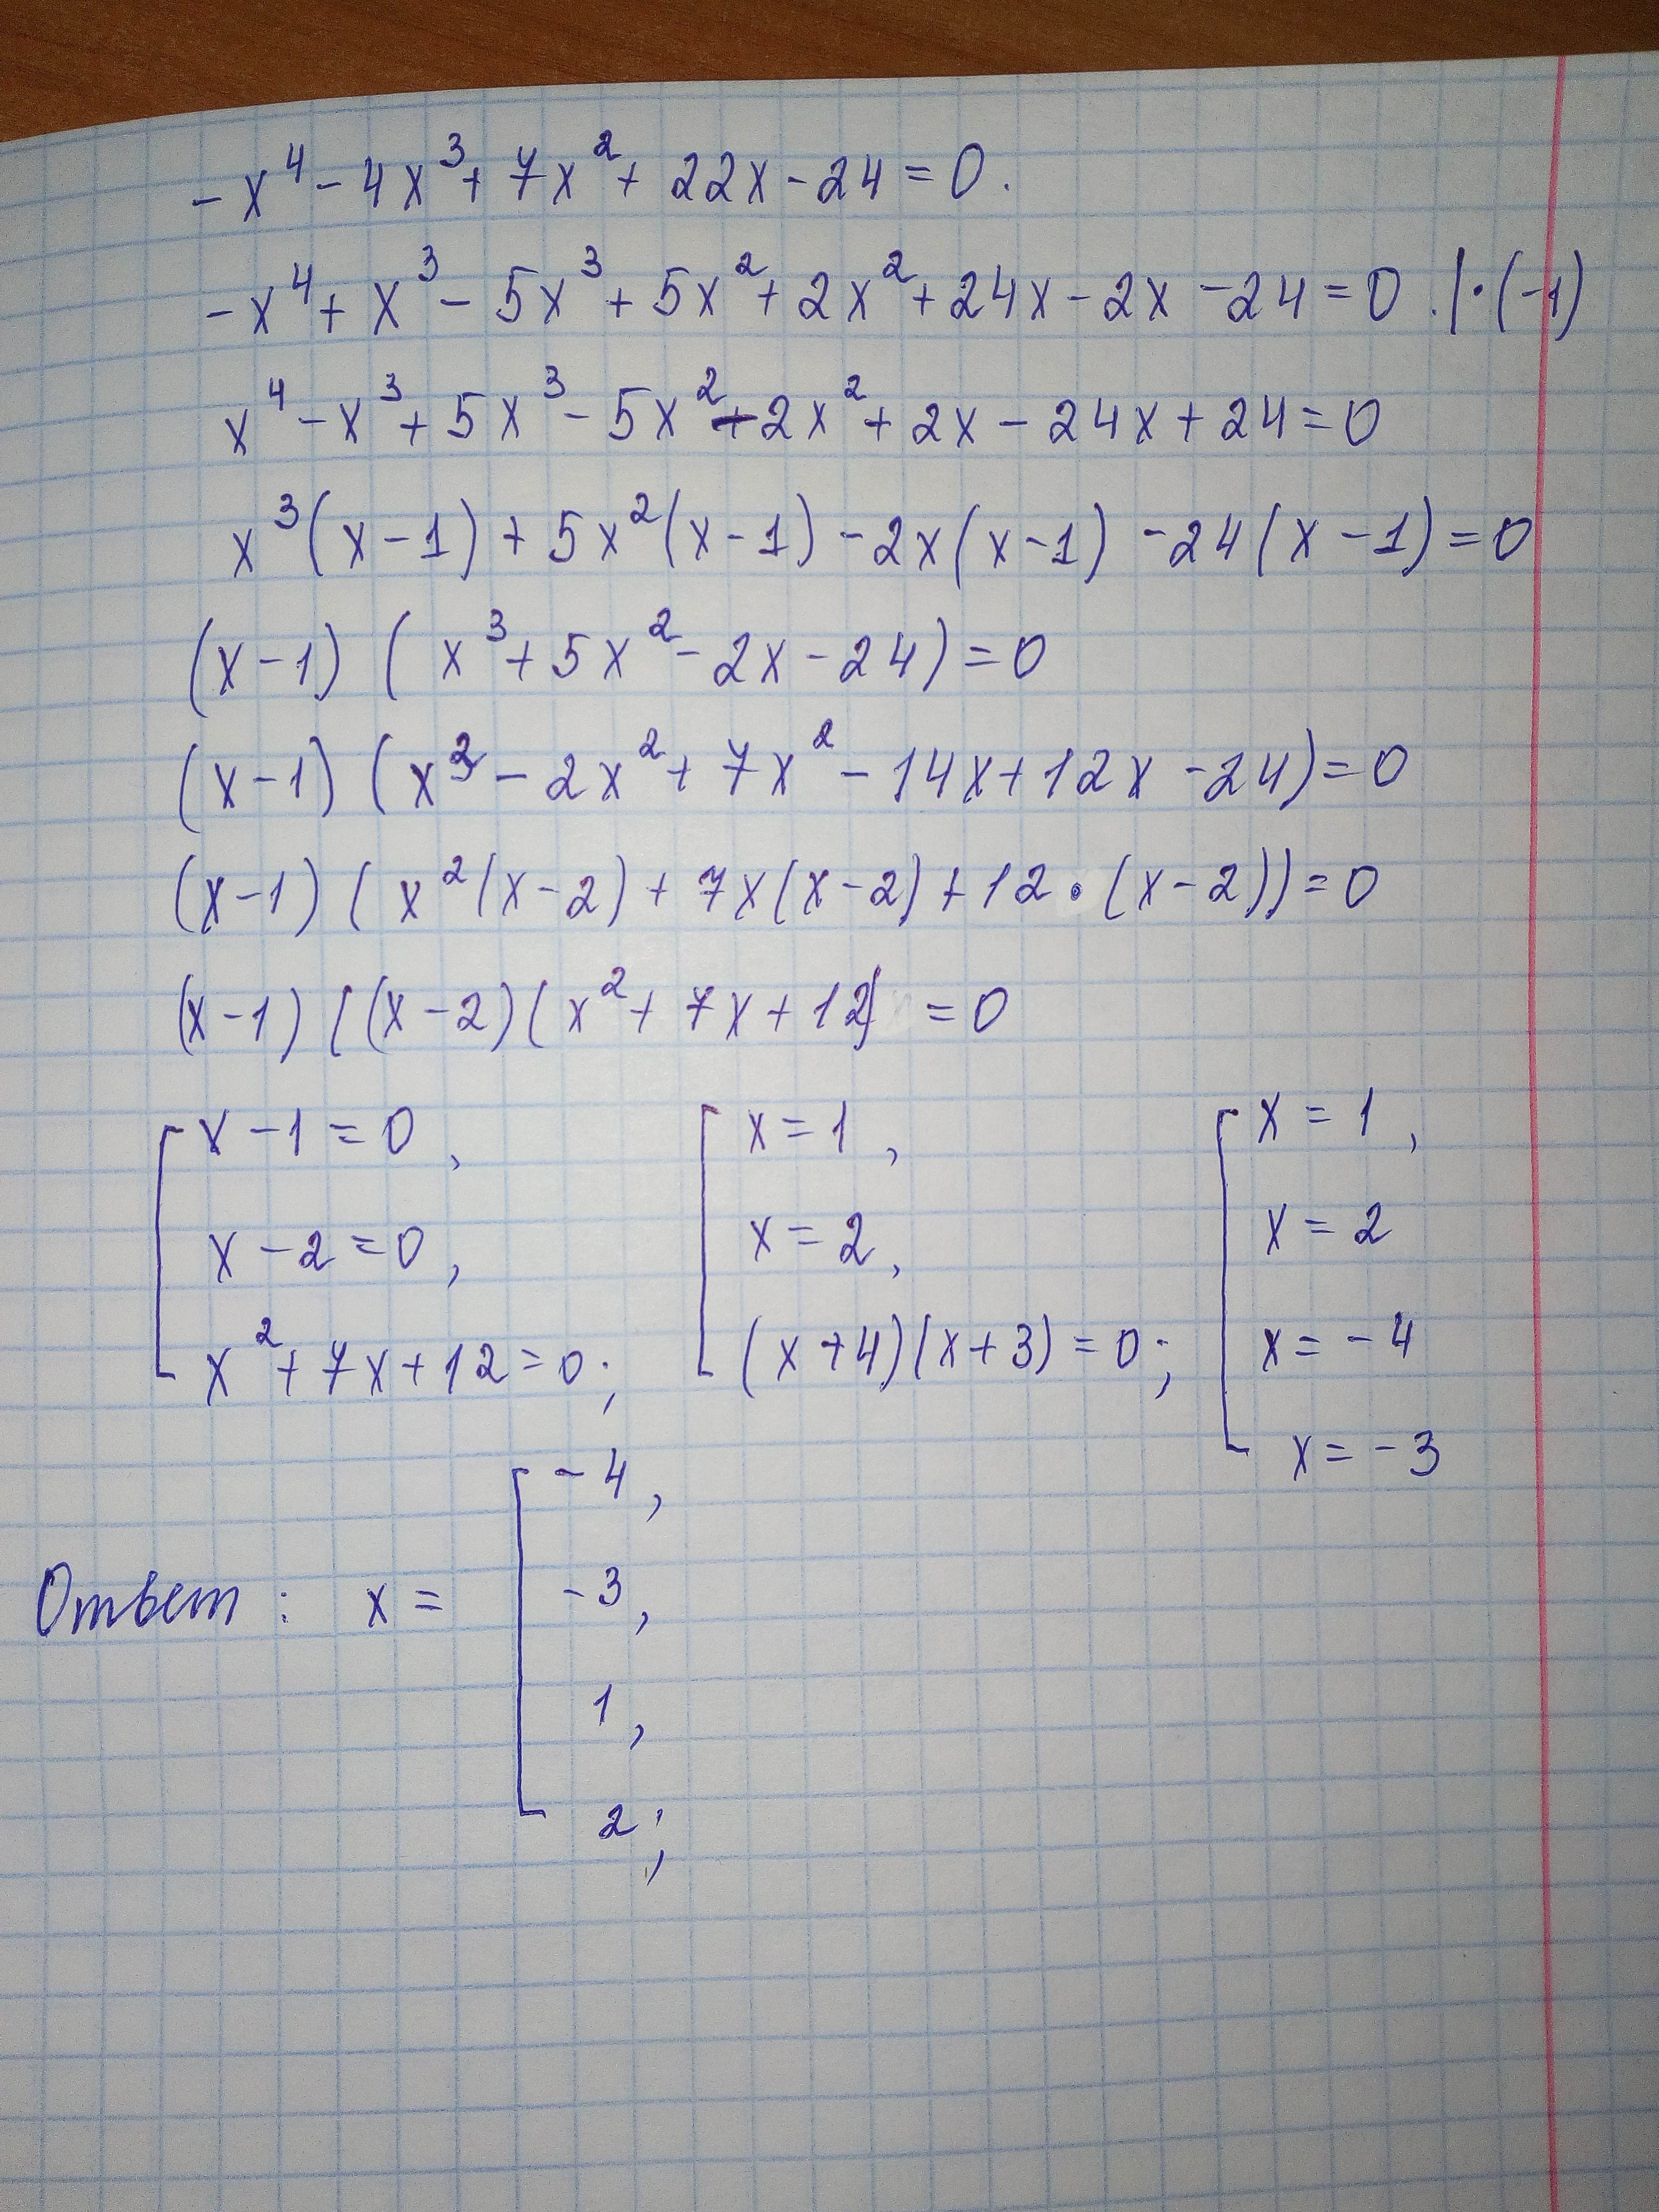 -x⁴ - 4x³ + 7x² + 22x - 24 = 0.
-x⁴ + x³ - 5x³ + 5x² + 2x² + 24x - 2x - 24 = 0 . | · (-1)
x⁴ - x³ + 5x³ - 5x² - 2x² + 2x - 24x + 24 = 0
x³(x - 1) + 5x²(x - 1) - 2x(x - 1) - 24(x - 1) = 0
(x - 1) (x³ + 5x² - 2x - 24) = 0
(x - 1) (x³ - 2x² + 7x² - 14x + 12x - 24) = 0
(x - 1) (x²(x - 2) + 7x(x - 2) + 12 · (x - 2)) = 0
(x - 1) ((x - 2)(x² + 7x + 12) = 0
[ x - 1 = 0, [ x = 1, [ x = 1,
x - 2 = 0, x = 2, x = 2
x² + 7x + 12 = 0; (x + 4)(x + 3) = 0; x = -4
x = -3
[ -4,
-3,
Ответ: x =
1,
2;